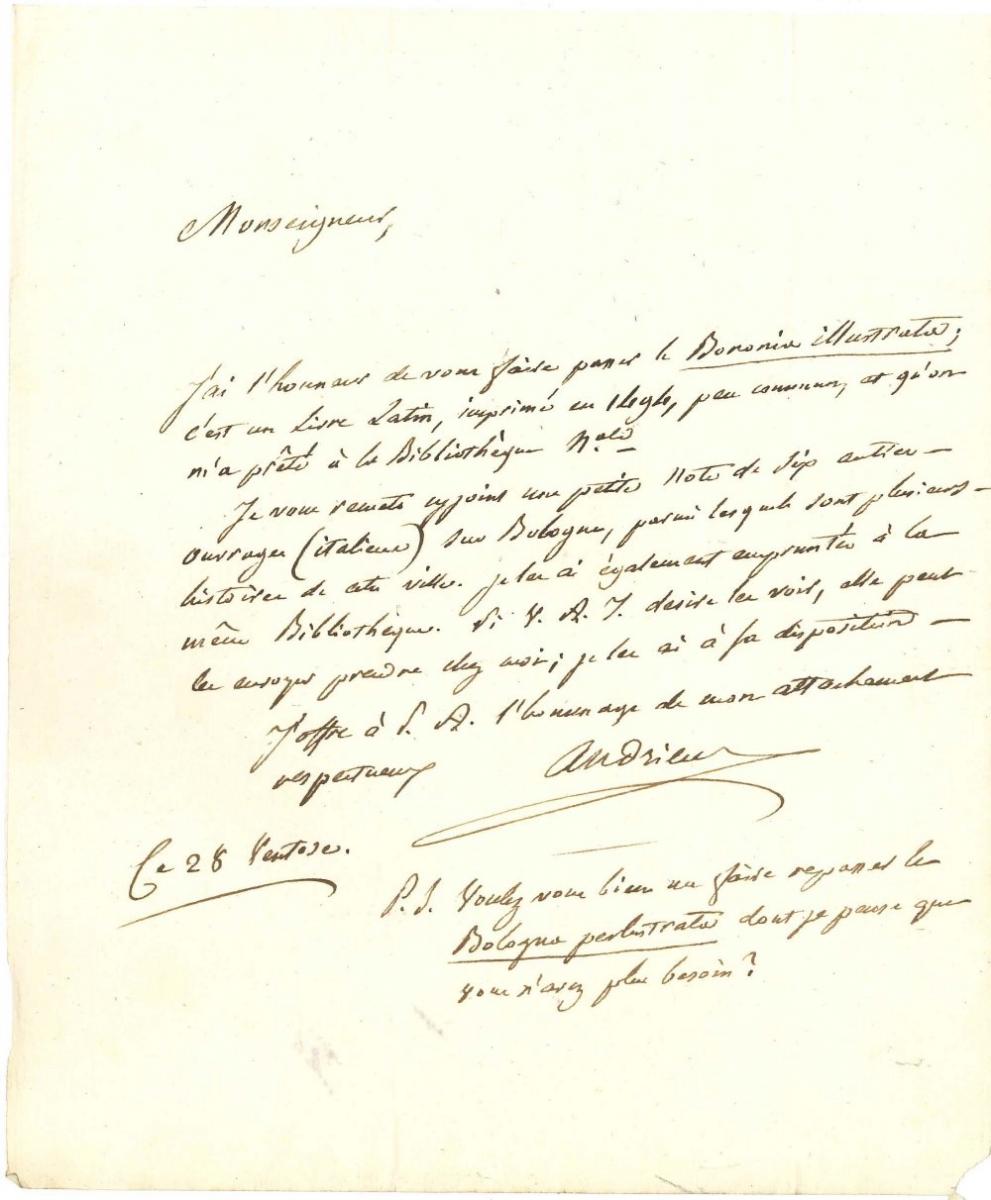 Monseigneur,
J'ai l'honneur de vous faire passer le Bononia illustrata;
c'est un Livre Latin, imprimé en, peu commun, et qu'on
m'a prêté à la Bibliothèque N.ale
Je vous remets cyjoint une petite Note de six autres
ouvrages (italiens) sur Bologne, parmi lesquels sont plusieurs
histoires de cette ville. Je les ai également empruntés à la
même Bibliothèque. Si V. A. S. desire les voir, elle peut
les envoyer prendre chez moi; je les ai à sa disposition
J'offre à S. A. l'hommage de mon attachement
respectueux
Andrieux
Ce 28 Ventose.
P. S. Voulez vous bien me faire repasser le
Bologna perlustrata dont je pense que
vous n'avez plus besoin?